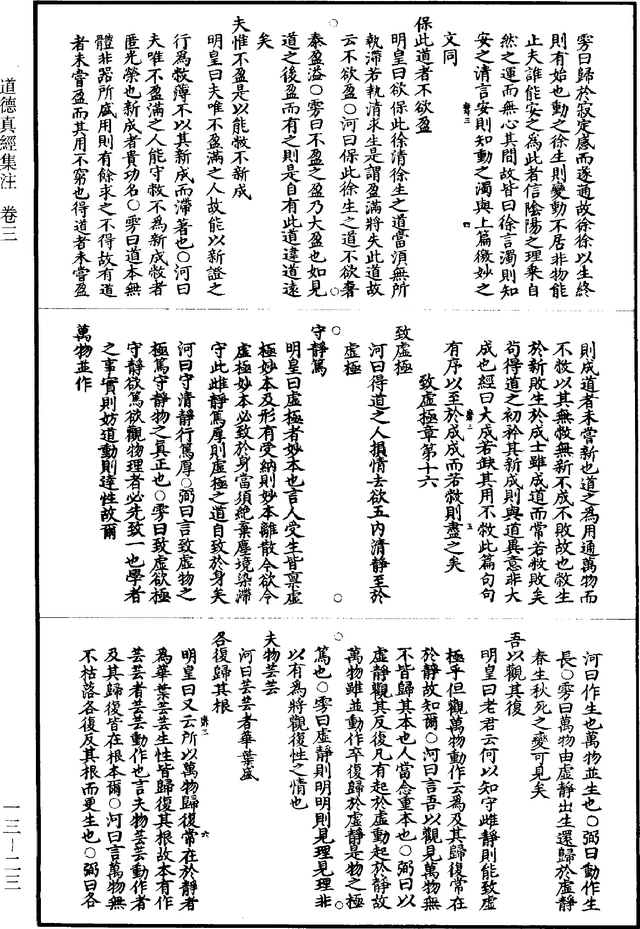 道德真經集注　卷三
雱曰歸於寂定感而遂通故徐徐以生終
則有始也動之徐生則變動不居非物能
止夫誰能安之為此者信陰陽之理乘自
然之運而無心其間故皆曰徐言濁則知
安之清言安則知動之濁與上篇微妙之
文同
保此道者不欲盈
明皇曰欲保此徐清徐生之道當須無所
執滯若執清求生是謂盈滿將失此道故
云不欲盈○河曰保此徐生之道不欲奢
泰盈溢○雱曰不盈之盈乃大盈也如見
道之後盈而有之則是自有此道違道遠
矣
夫惟不盈是以能敝不新成
明皇曰夫唯不盈滿之人故能以新證之
行為敝薄不以其新成而滯著也○河曰
夫唯不盈滿之人能守敝不為新成敝者
匿光榮也新成者貴功名○雱曰道本無
體非器所盛用則有餘求之不得故有道
者未嘗盈而其用不窮也得道者未嘗盈
則成道者未嘗新也道之為用通萬物而
不敝以其無敝無新不成不敗故也敝生
於新敗生於成士雖成道而常若敝敗矣
苟得道之初矜其新成則與道異意非大
成也經曰大成若缺其用不敝此篇句句
有序以至於成成而若敝則盡之矣
致虛極章第十六
致虛極
河曰得道之人損情去欲五內清靜至於
虛極
守靜篤
明皇曰虛極者妙本也言人受生皆稟虛
極妙本及形有受納則妙本離散今欲令
虛極妙本必致於身當須絕棄塵境染滯
守此雌靜篤厚則虛極之道自致於身矣
河曰守清靜行篤厚○弼曰言致虛物之
極篤守靜物之真正也○雱曰致虛欲極
守靜欲篤欲觀物理者必先致一也學者
之事實則妨道動則違性故爾
萬物並作
河曰作生也萬物並生也○弼曰動作生
長○雱曰萬物由虛靜出生還歸於虛靜
春生秋死之變可見矣
吾以觀其復
明皇曰老君云何以知守雌靜則能致虛
極乎但觀萬物動作云為及其歸復常在
於靜故知爾○河曰言吾以觀見萬物無
不皆歸其本也人當念重本也○弼曰以
虛靜觀其反復凡有起於虛動起於靜故
萬物雖並動作卒復歸於虛靜是物之極
篤也○雱曰虛靜則明明則見理見理非
以有為將觀復性之情也
夫物芸芸
河曰芸芸者華葉盛
各復歸其根
明皇曰又云所以萬物歸復常在於靜者
為華葉芸芸生性皆歸復其根故本有作
芸芸者芸芸動作也言夫物芸芸動作者
及其歸復皆在根本爾○河曰言萬物無
不枯落各復反其根而更生也○弼曰各
一三—二三